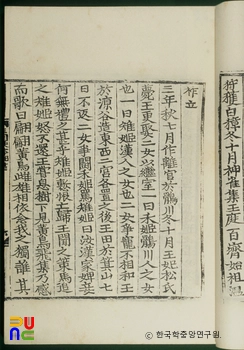 狩獲白獐冬十月神雀集王庭百濟始祖溫
祚立
三年秋七月作離宮於鶻川冬十月王妃松氏
薨王更娶二女以繼室一曰禾姬鶻川人之女
也一曰雉姬漢人之女也二女爭寵不相和王
於涼谷造東西二宮各置之後王田於箕山七
日不返二女爭鬪禾姬罵雉姬曰汝漢家婢妾
何無禮之甚乎雉姬慙恨亡歸王聞之策馬追
之雉姬怒不還王嘗息樹下見黃鳥飛集乃感
而歌曰翩翩黃鳥雌雄相依念我之獨誰其
© 한국학중앙연구원